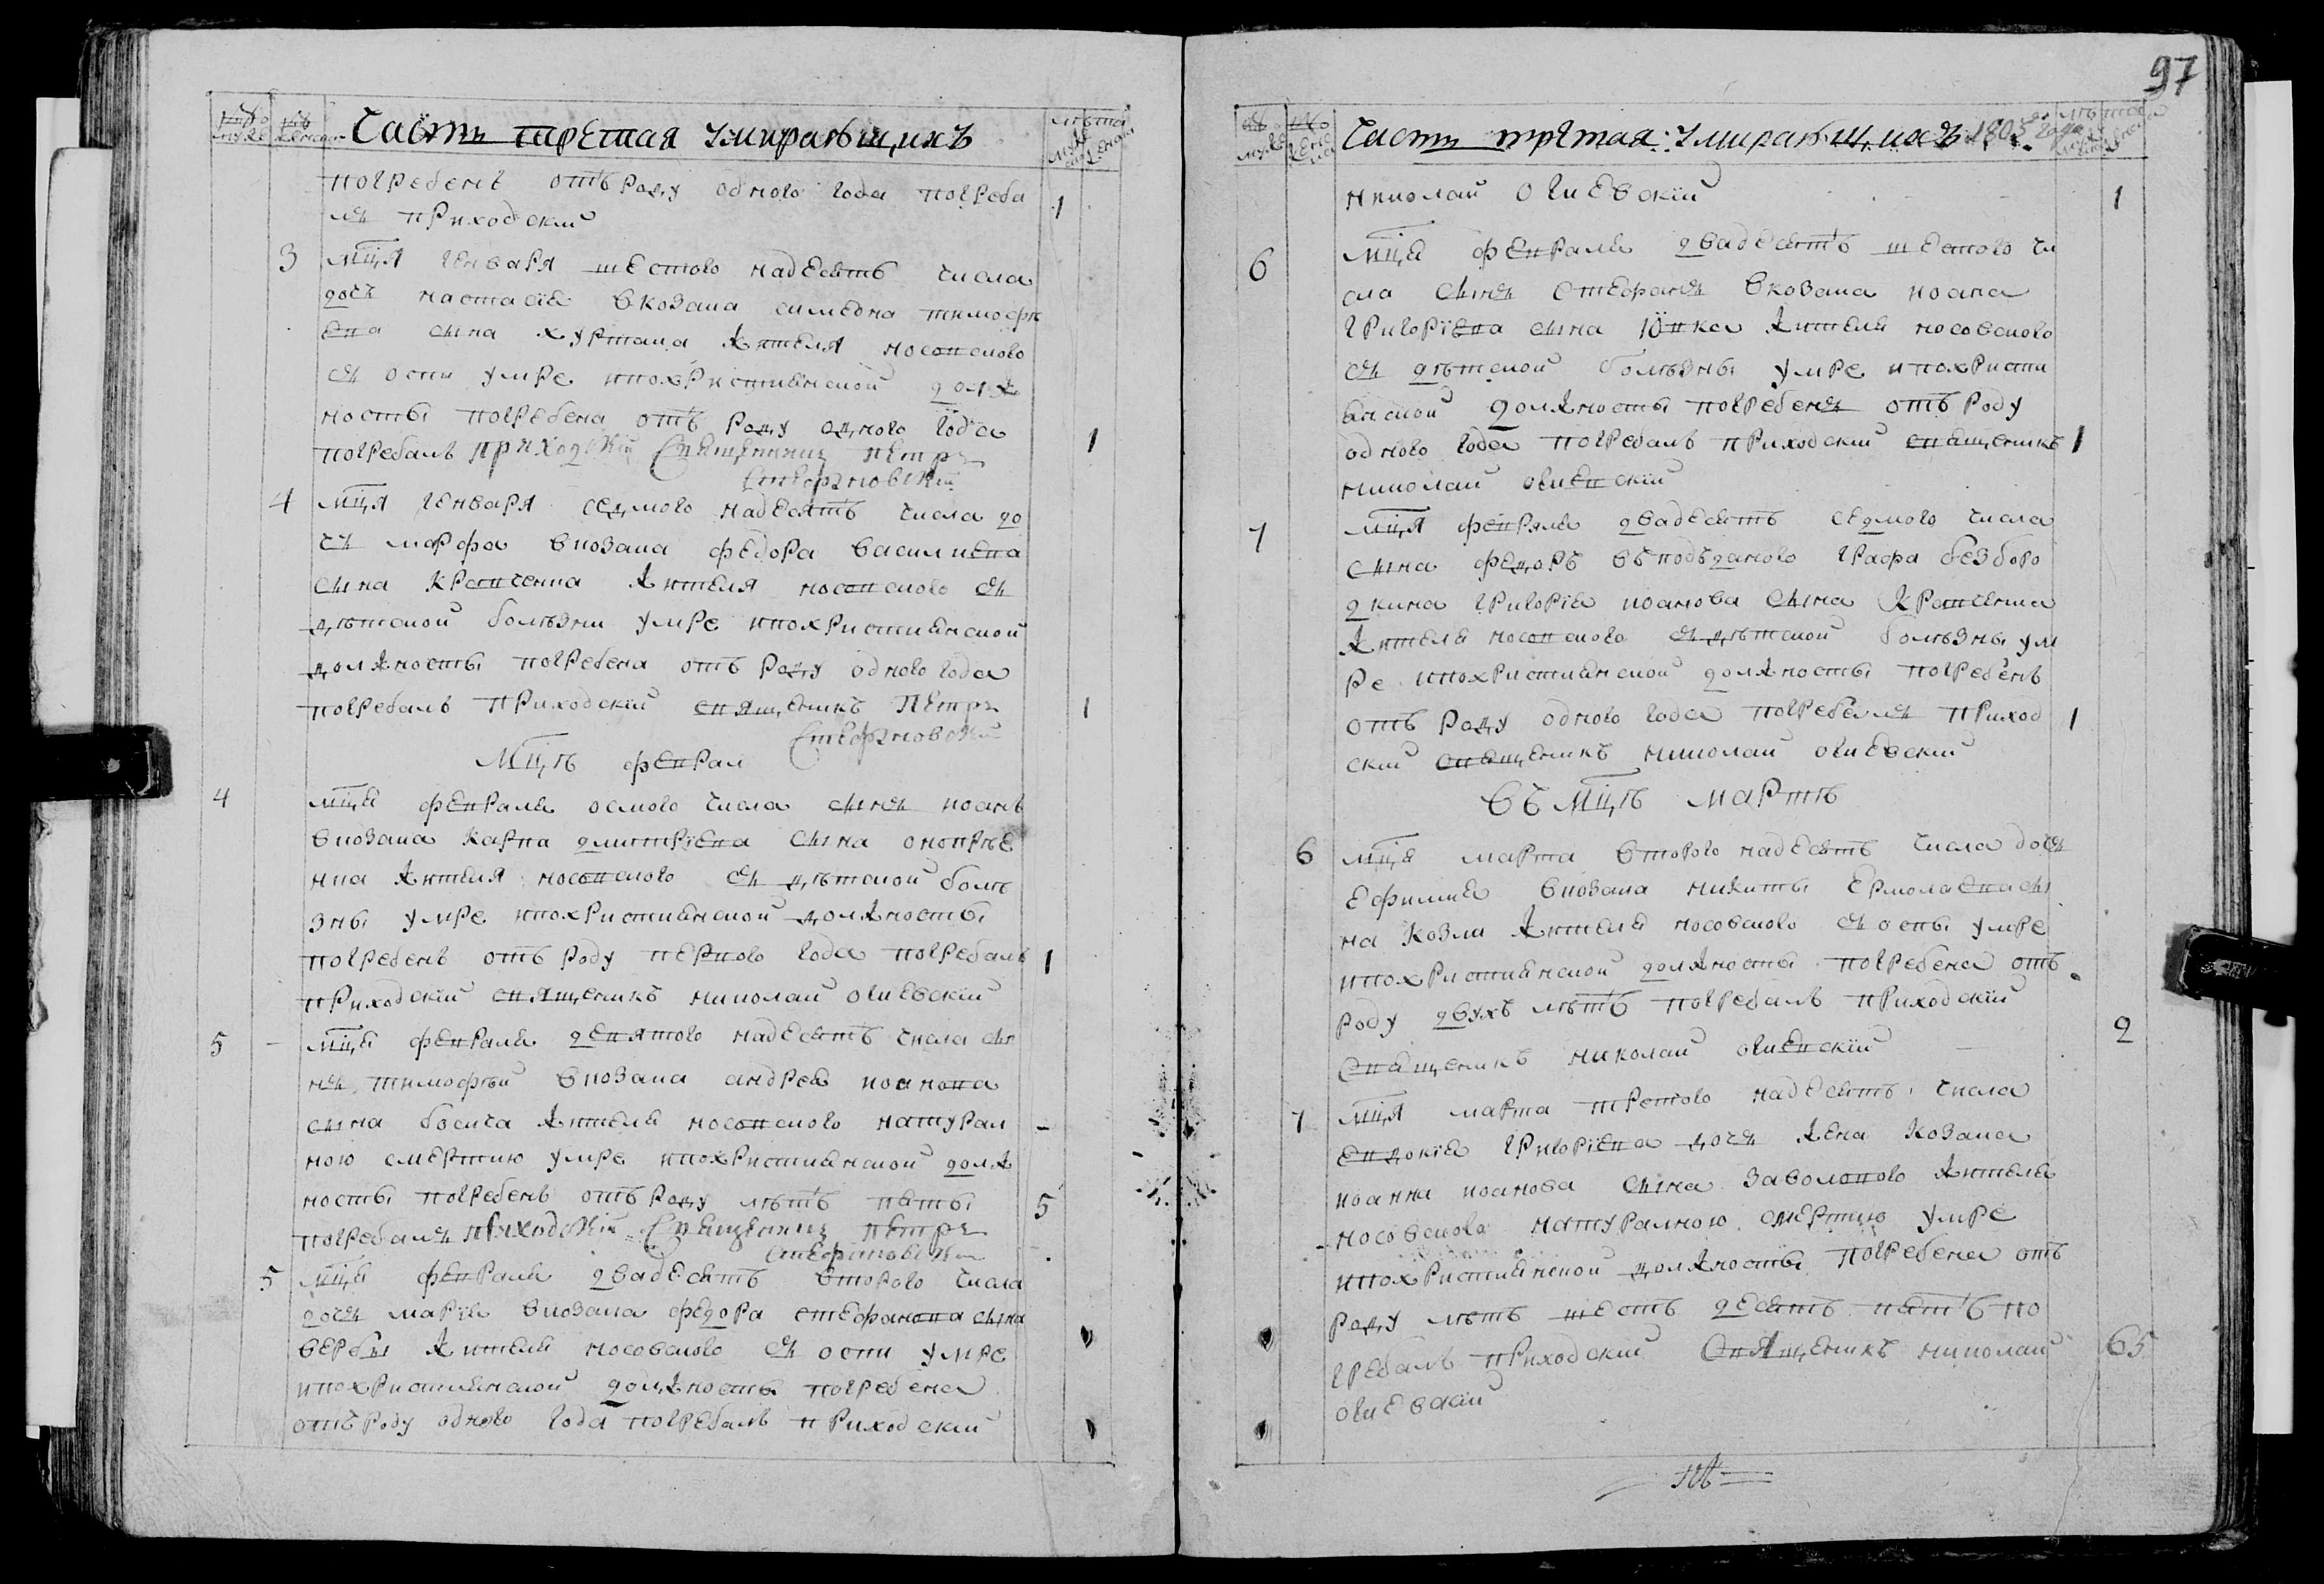 97
Часть третая умиравшихъ
погребенъ отъ роду одного года погреба
лъ приходский 1
3 мц̃я генваря шестого надесять числа
дочъ настасия вкозака симеона тимофѣ
ева сына хуртака жителя носовского
съ оспи умре ипохристиянской долж
ности погребена отъ роду одного года
погребалъ приходскій Священникъ Петръ 1
Стефановскій
4 мц̃я генваря седмого надесять числа до
чъ марфа вкозака федора василиева
сына кравченка жителя носовского съ
дѣтской болѣзни умре ипохристиянской
должносты погребена отъ роду одного года
погребалъ приходский священикъ Петръ 1
Стефановскій
Мц̃ъ феврал
4 мц̃я февраля осмого числа сынъ иоанъ
вкозака карпа дмитриева сына онопрѣе
нка жителя носовского съ дѣтской болѣ
зны умре ипохристиянской должносты
погребенъ отъ роду первого года погребалъ 1
приходский священикъ николай огиевский
5 мц̃я февраля девятого надесять числа сы
нъ тимофѣй вкозака андрея иоанова
сына босича жителя носовского натурал
ною смертию умре ипохристиянской долж
носты погребенъ отъ роду лѣтъ пяты 5
погребалъ приходскій Священникъ Петръ
Стефановскій
5 мц̃я февраля двадесять второго числа
дочъ мария вкозака федора стефанова сына
вербы жителя носовского съ оспи умре
ипохристиянской должносты погребена
отъ роду одного года погребалъ приходский
Часть третая: умиравшихъ 1805 года
николай огиевский 1
6 мц̃я февраля двадесять шестого чи
сла сынъ стефанъ вкозака иоана
григориева сына юпка жителя носовского
съ дѣтской болѣзны умре ипохристи
янской должносты погребенъ отъ роду
одного года погребалъ приходский священикъ 1
николай огиевский
7 мц̃я февраля двадесять седмого числа
сына федоръ въ подъданого графа безборо
дкина григория иоанова сына кравченка
жителя носовского съ дѣтской болѣзны ум
ре ипохристиянской должносты погребенъ
отъ роду одного года погребалъ приход 1
ский священикъ николай огиевский
въ мц̃ѣ мартѣ
6 мц̃я марта второго надесять числа дочъ
ефимия вкозака никиты ермолаева сы
на козли жителя носовского съ оспы умре
ипохристиянской должносты погребена отъ
роду двухъ лѣтъ погребалъ приходский
священикъ николай огиевский 2
7 мц̃я марта третого надесять числа
евдокия григориева дочъ жена козака
иоанна иоанова сына заволокого жителя
носовского натуралною смертию умре
ипохристиянской должносты погребена отъ
роду лѣтъ шесть десять пять по
гребалъ приходский священикъ николай 65
огиевский